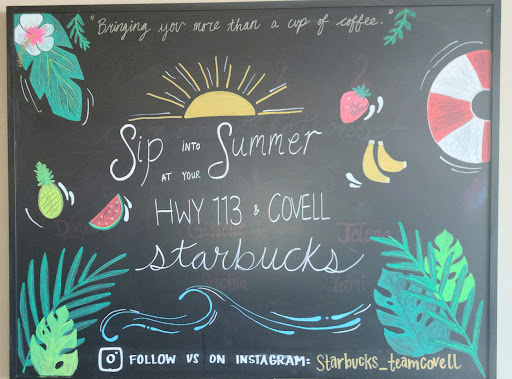 "Bringing you more than a cup of coffee."
Sip INTO Summer
AT YOUR
HWY 113 & COVELL
starbucks
FOLLOW US ON INSTAGRAM: Starbucks_teamcovell